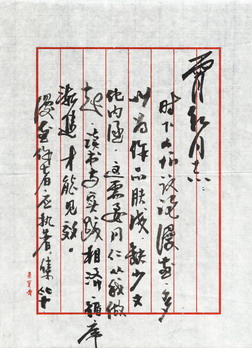 贾红同志：
时下人们议论漫画，多
以为作品肤浅，缺少文
化内涵。这需要同仁从我做
起，读书与实践相济，循序
渐进，才能见效。
漫画作者应执着，集